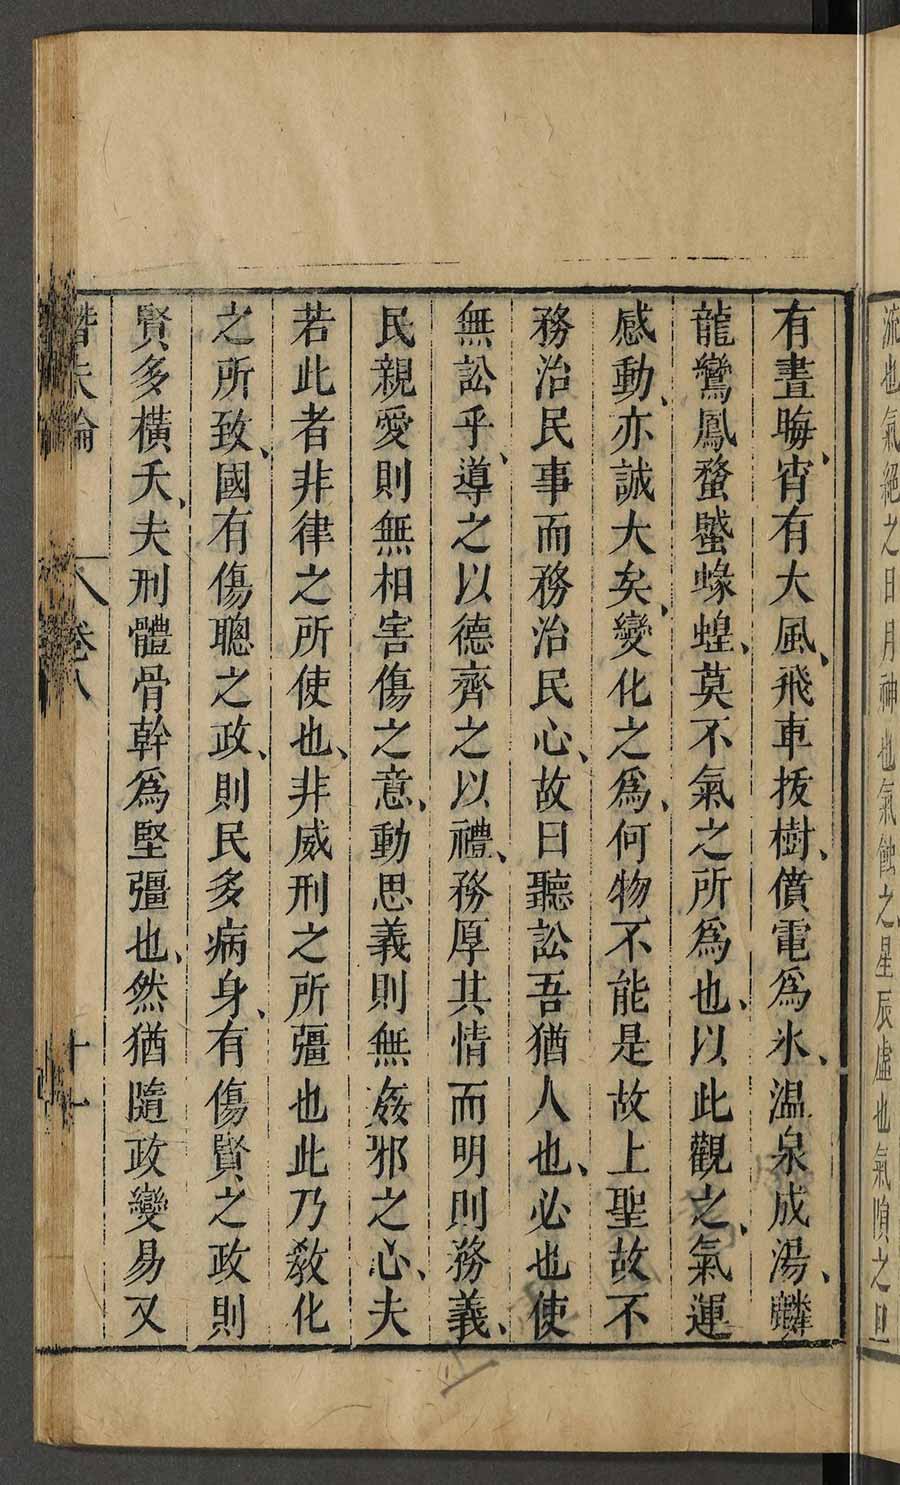 流也氣絕之日月神也氣蝕之星辰虛也氣隕之旦
有晝晦、宵有大風、飛車拔樹、僨電爲氷、温泉成湯、麟
龍鸞鳳蝥蠈蝝蝗、莫不氣之所爲也、以此觀之、氣運
感動、亦誠大矣、變化之爲、何物不能是故上聖故不
務治民事而務治民心、故曰聽訟吾猶人也、必也使
無訟乎、導之以德齊之以禮、務厚其情而明則務義、
民親愛則無相害傷之意、動思義則無姦邪之心、夫
若此者非律之所使也、非威刑之所彊也此乃教化
之所致、國有傷聰之政、則民多病身、有傷賢之政則
賢多橫夭、夫刑體骨幹爲堅彊也、然猶隨政變易又
潛夫論 卷八 十一